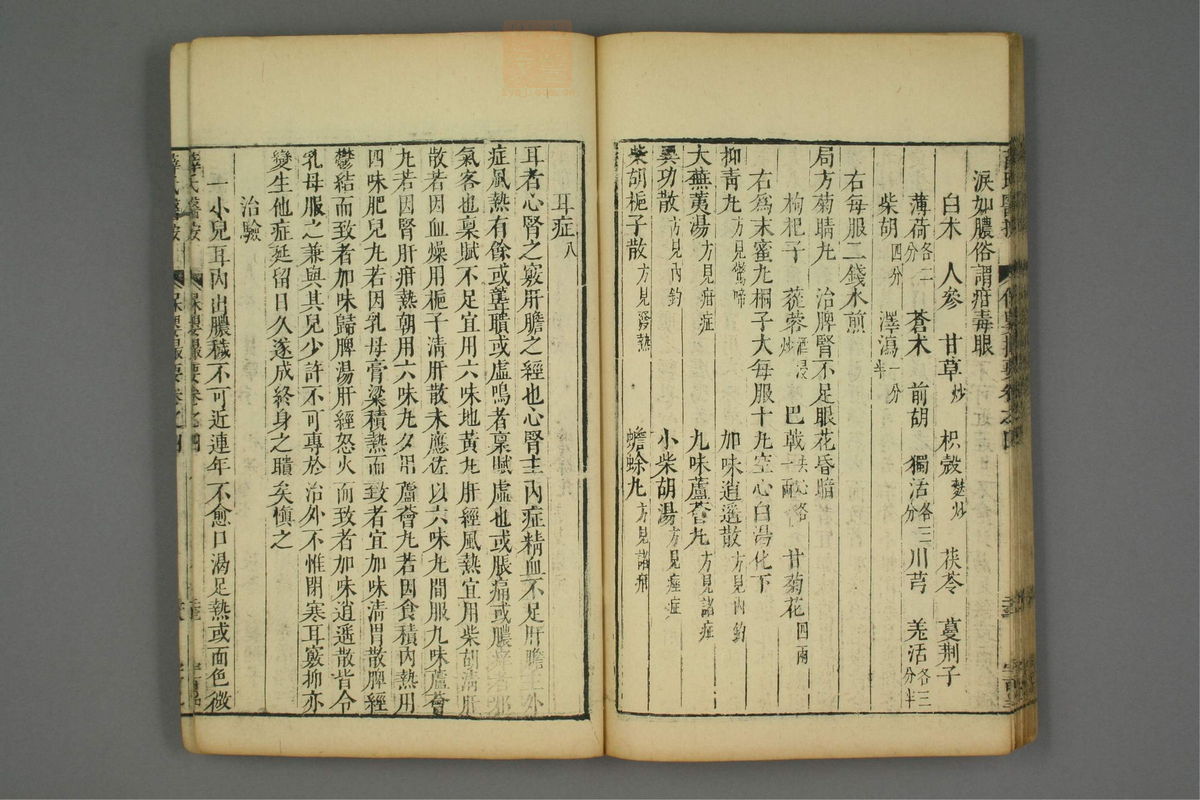 淚如膿俗謂疳毒眼
白朮 人參 甘草炒 枳殼麩炒 茯苓 蔓荊子
薄荷各二分 蒼朮 前胡 獨活各三分 川芎 羌活各三分半
柴胡四分 澤瀉一分半
右每服二錢水煎
局方菊睛丸 治脾腎不足眼花昏暗
枸杞子 蓯蓉酒浸炒 巴戟一兩 甘菊花四兩
右為末蜜丸桐子大每服十丸空心白湯化下
抑青丸方見驚啼 加味逍遙散方見內釣
大蕪荑湯方見疳症 九味蘆薈丸方見諸疳
異功散方見內釣 小柴胡湯方見痙症
柴胡梔子散方見發熱 蟾蜍丸方見諸疳
耳症八
耳者心腎之竅肝膽之經也心腎主內症精血不足肝膽主外
症風熱有餘或聾聵或虛鳴者稟賦虛也或脹痛或膿痒者邪
氣客也稟賦不足宜用六味地黃丸肝經風熱宜用柴胡清肝
散若因血燥用梔子清肝散未應佐以六味丸間服九味蘆薈
丸若因腎肝疳熱朝用六味丸夕用蘆薈丸若因食積內熱用
四味肥兒丸若因乳母膏粱積熱而致者宜加味清胃散脾經
鬱結而致者加味歸脾湯肝經怒火而致者加味逍遙散皆令
乳母服之兼與其兒少許不可專於治外不惟閉塞耳竅抑亦
變生他症延留日久遂成終身之聵矣慎之
治驗
一小兒耳內出膿穢不可近連年不愈口渴足熱或面色微
薛氏醫按 保嬰撮要卷之四